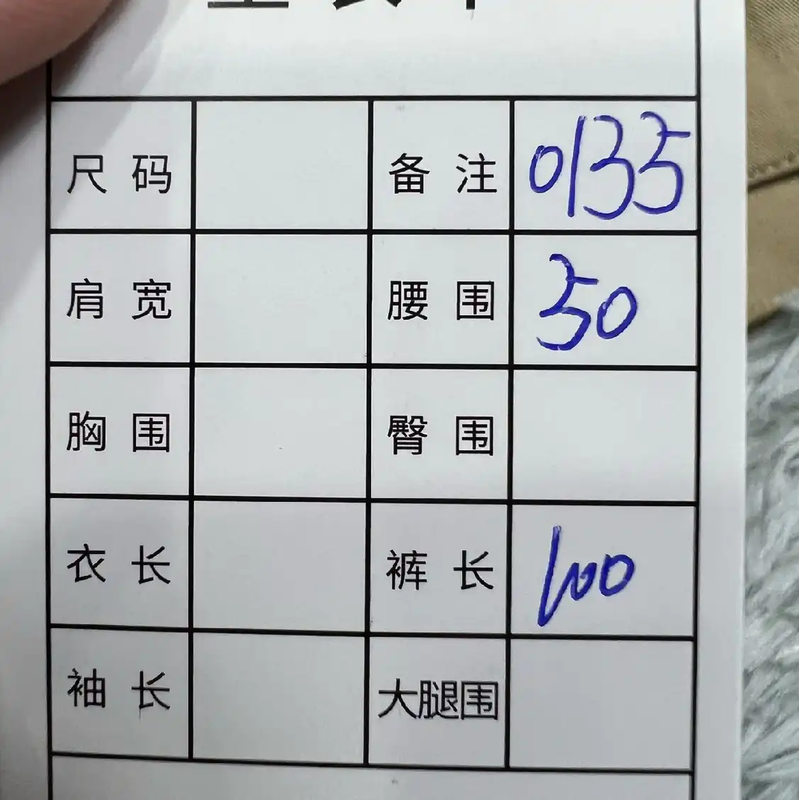 尺码 备注 0135
肩宽 腰围 50
胸围 臀围
衣长 裤长 100
袖长 大腿围